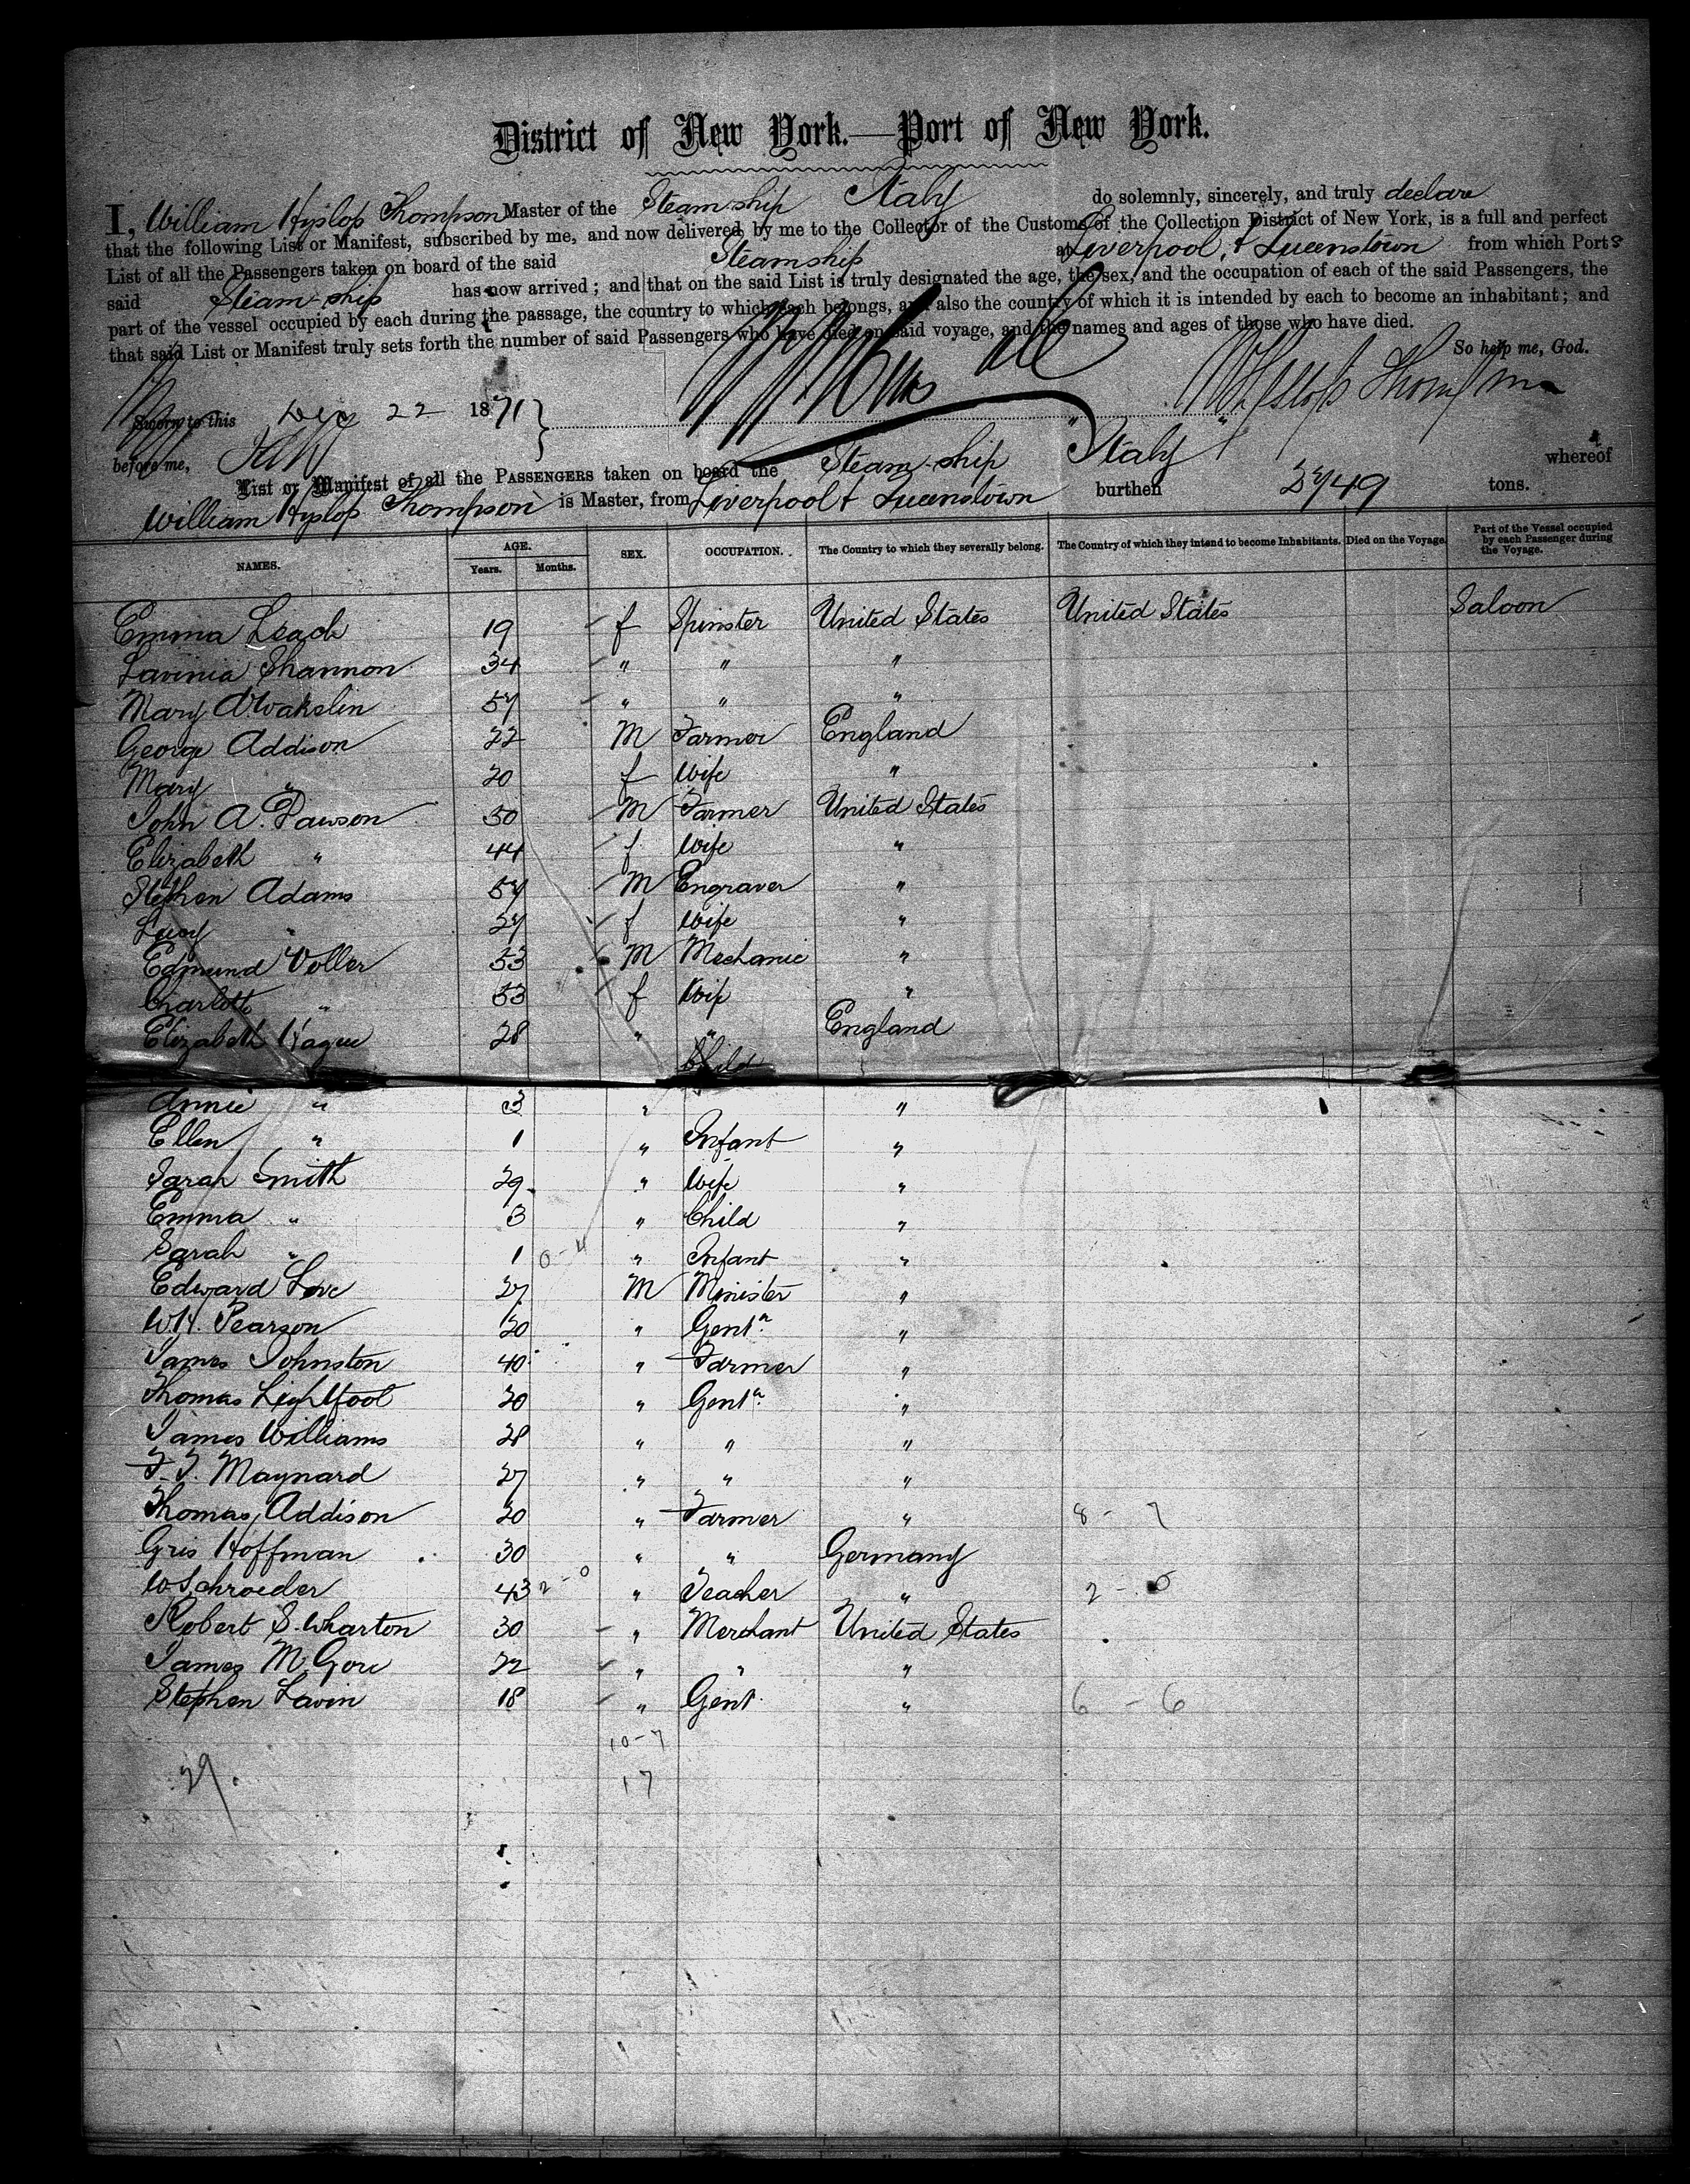 District of New York.—Port of New York.
I, William Hyslop Thompson Master of the Steam ship Italy do solemnly, sincerely, and truly declare
that the following List or Manifest, subscribed by me, and now delivered by me to the Collector of the Customs of the Collection District of New York, is a full and perfect
List of all the Passengers taken on board of the said Steamship at Liverpool, & Queenstown from which Ports
said Steam-ship has now arrived; and that on the said List is truly designated the age, the sex, and the occupation of each of the said Passengers, the
part of the vessel occupied by each during the passage, the country to which each belongs, and also the country of which it is intended by each to become an inhabitant; and
that said List or Manifest truly sets forth the number of said Passengers who have died on said voyage, and the names and ages of those who have died.
So help me, God.
Sworn to this Dec 22 1871 } W Hyslop Thompson
before me,
List or Manifest of all the PASSENGERS taken on board the Steam-ship "Italy" whereof
William Hyslop Thompson is Master, from Liverpool & Queenstown burthen 2749 tons.
NAMES. AGE. Years. Months. SEX. OCCUPATION. The Country to which they severally belong. The Country of which they intend to become Inhabitants. Died on the Voyage. Part of the Vessel occupied by each Passenger during the Voyage.
Emma Leach 19 f Spinster United States United States Saloon
Lavinia Shannon 34 " " "
Mary 57 " " "
George Addison 22 M Farmer England
Mary " 20 f Wife "
John A. Dawson 50 M Farmer United States
Elizabeth " 44 f Wife "
Stephen Adams 57 M Engraver "
Lucy " 27 f Wife "
Edmund Voller 53 M Mechanic "
Charlott " 53 f Wife "
Elizabeth Hague 28 " " England
Annie " 3 " Child "
Ellen " 1 " Infant "
Sarah Smith 29 " Wife "
Emma " 3 " Child "
Sarah " 1 0-4 " Infant "
Edward Love 27 M Minister "
W.H. Pearson 20 " Gentn "
James Johnston 40 " Farmer "
Thomas Lightfoot 20 " Gentn "
James Williams 28 " " "
F. T. Maynard 27 " " "
Thomas Addison 20 " Farmer " 8 - 7
Gris Hoffman 30 " " Germany
W Schroeder 43 2-0 " Teacher " 2 - 0
Robert S. Wharton 30 " Merchant United States
James M. Gore 22 " " "
Stephen Lavin 18 " Gent. " 6 - 6
10-7
29. 17